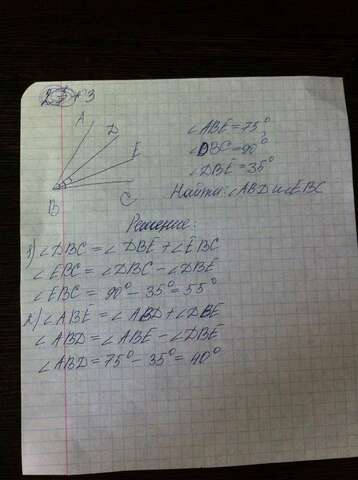 №3
A
D
E
B
C
∠ABE=75°
∠DBC=90°
∠DBE=35°
Найти: ∠ABD и ∠EBC
Решение:
1) ∠DBC = ∠DBE + ∠EBC
∠EBC = ∠DBC - ∠DBE
∠EBC = 90° - 35° = 55°
2) ∠ABE = ∠ABD + ∠DBE
∠ABD = ∠ABE - ∠DBE
∠ABD = 75° - 35° = 40°